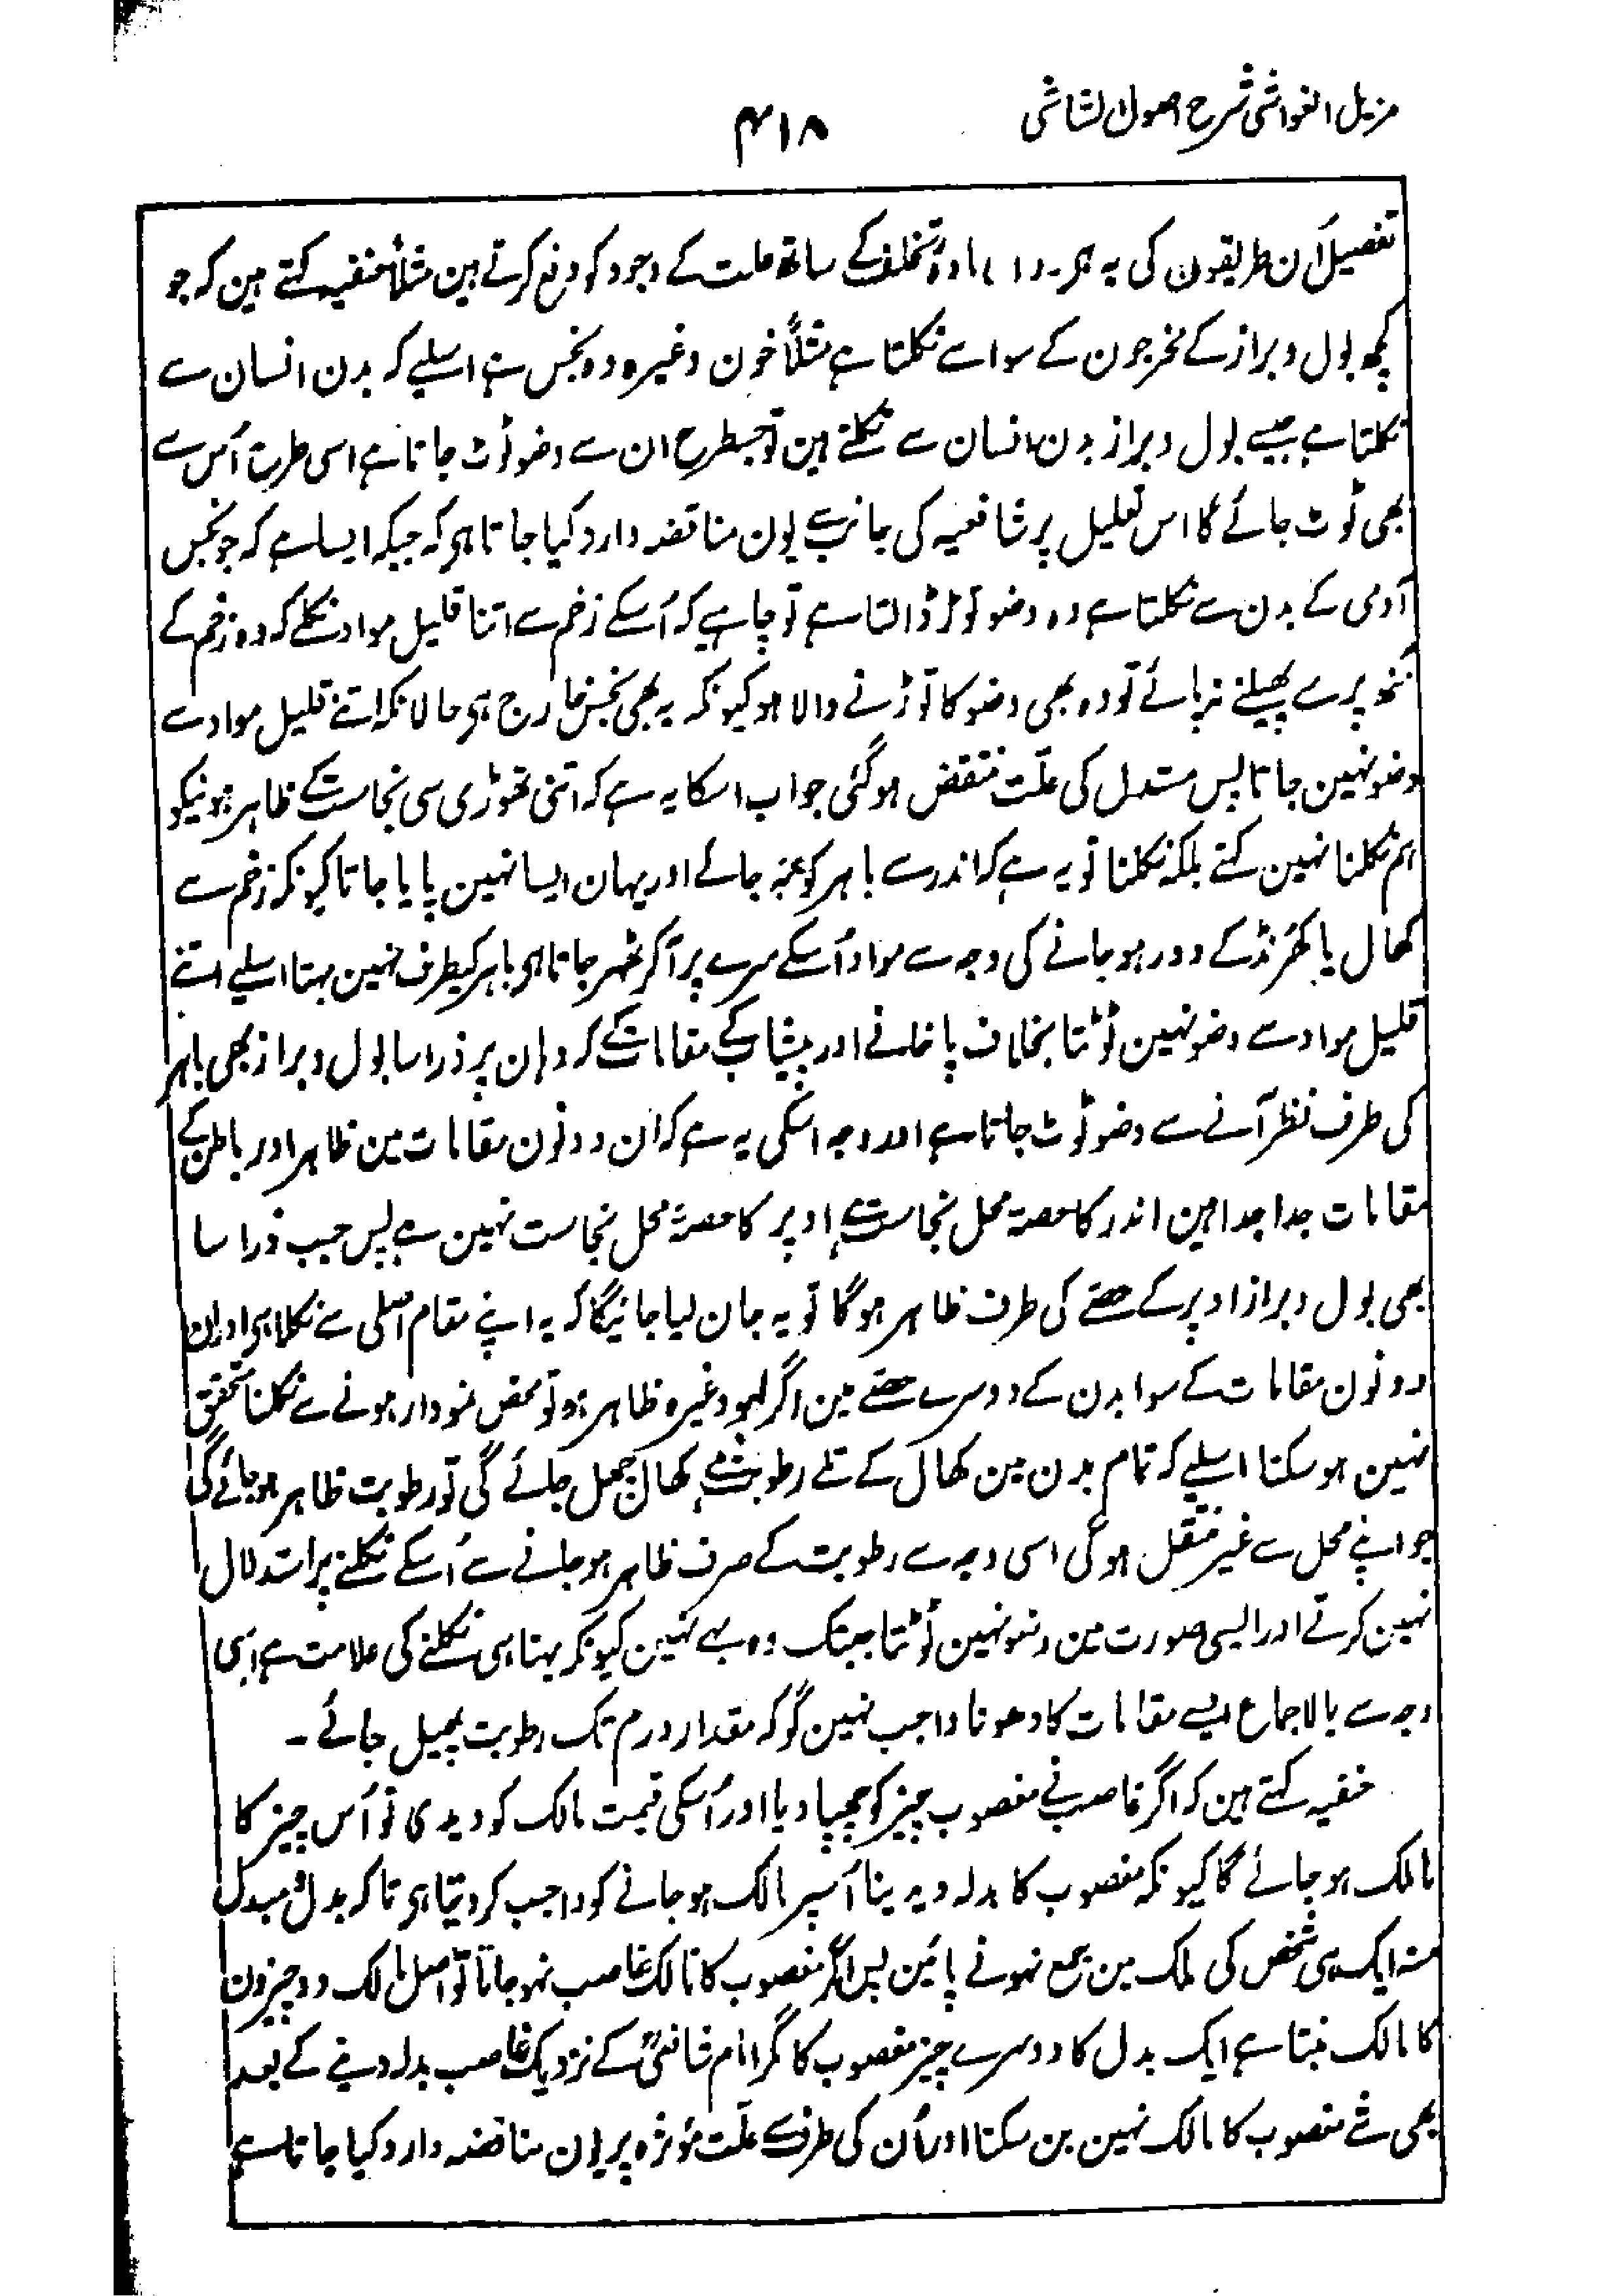 مزیل الغواشی شرح اصول الشاشی
۴۱۸
تفصیل اُن طریقون کی یہ ہی۔ (۱) مادۂ تخلف کے ساتھ علت کے وجود کو دفع کرتے ہین مثلاً حنفیہ کہتے ہین کہ جو
کچھ بول و براز کے مخرجون کے سواے نکلتا ہے مثلاً خون وغیرہ وہ نجس ہے اسلیے کہ بدن انسان سے
نکلتا ہے جیسے بول و براز بدن انسان سے نکلتے ہین تو جسطرح ان سے وضو ٹوٹ جاتا ہے اسی طرح اُس سے
بھی ٹوٹ جائے گا اس تعلیل پر شافعیہ کی جانب سے یون مناقضہ وارد کیا جاتا ہی کہ جبکہ ایسا ہے کہ جو نجس
آدمی کے بدن سے نکلتا ہے وہ وضو توڑ ڈالتا ہے تو چاہیے کہ اُسکے زخم سے اتنا قلیل مواد نکلے کہ وہ زخم کے
منھ پر سے پھیلنے نہ پائے تو وہ بھی وضو کا توڑنے والا ہو کیونکہ یہ بھی نجس خارج ہی حالانکہ اتنے قلیل مواد سے
وضو نہین جاتا پس مستدل کی علّت منتقض ہوگئی جواب اسکا یہ ہے کہ اتنی تھوڑی سی نجاست کے ظاہر ہونیکو
ہم نکلنا نہین کہتے بلکہ نکلنا تو یہ ہے کہ اندر سے باہر کو بہ جائے اور یہان ایسا نہین پایا جاتا کیونکہ زخم سے
کھال یا کھرنڈ کے دور ہوجانے کی وجہ سے مواد اُسکے سرے پر آکر ٹھہر جاتا ہی باہر کیطرف نہین بہتا اسلیے اتنے
قلیل مواد سے وضو نہین ٹوٹتا بخلاف پاخانے اور پیشاب کے مقامات کے کہ وہان پر ذرا سا بول و براز بھی باہر
کی طرف نظر آنے سے وضو ٹوٹ جاتا ہے اور وجہ اسکی یہ ہے کہ ان دونون مقامات مین ظاہر اور باطن کے
مقامات جدا جدا ہین اندر کا حصہ محل نجاست ہے اوپر کا حصہ محل نجاست نہین ہے پس جب ذرا سا
بھی بول و براز اوپر کے حصے کی طرف ظاہر ہوگا تو یہ جان لیا جائیگا کہ یہ اپنے مقام اصلی سے نکلا ہی اور ان
دونون مقامات کے سوا بدن کے دوسرے حصے مین اگر لہو وغیرہ ظاہر ہو تو محض نمودار ہونے سے نکلنا متحقق
نہین ہوسکتا اسلیے کہ تمام بدن مین کھال کے تلے رطوبت ہے کھال چھل جائے گی تو رطوبت ظاہر ہوجائے گی
جو اپنے محل سے غیر منتقل ہوگی اسی وجہ سے رطوبت کے صرف ظاہر ہوجانے سے اُسکے نکلنے پر استدلال
نہین کرتے اور ایسی صورت مین وضو نہین ٹوٹتا جبتک وہ بہے نہین کیونکہ بہنا ہی نکلنے کی علامت ہے اسی
وجہ سے بالاجماع ایسے مقامات کا دھونا واجب نہین گو کہ مقدار درم تک رطوبت پھیل جائے۔
حنفیہ کہتے ہین کہ اگر غاصب نے مغصوب چیز کو چھپا دیا اور اُسکی قیمت مالک کو دیدی تو اُس چیز کا
مالک ہوجائے گا کیونکہ مغصوب کا بدلہ دیدینا اُسپر مالک ہوجانے کو واجب کردیتا ہی تاکہ بدل و مبدل
منہ ایک ہی شخص کی ملک مین جمع نہونے پائین پس اگر مغصوب کا مالک غاصب نہوجاتا تو اصل مالک دو چیزون
کا مالک بنتا ہے ایک بدل کا دوسرے چیز مغصوب کا مگر امام شافعیؒ کے نزدیک غاصب بدلہ دینے کے بعد
بھی شے مغصوب کا مالک نہین بن سکتا اور اُن کی طرف سے علّت مؤثرہ پر یون مناقضہ وارد کیا جاتا ہے